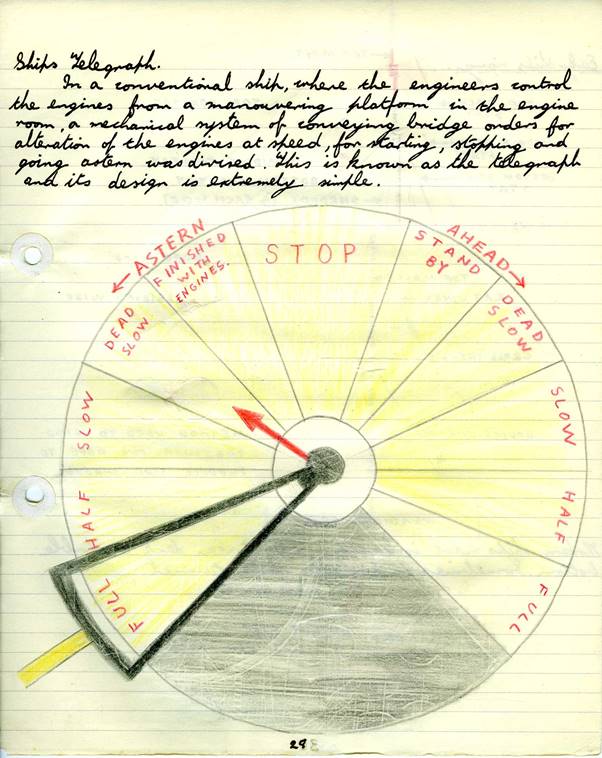 Ships Telegraph.
In a conventional ship, where the engineers control
the engines from a manouvering platform in the engine
room, a mechanical system of conveying bridge orders for
alteration of the engines at speed, for starting, stopping and
going astern was divised. This is known as the telegraph
and its design is extremely simple.
←ASTERN
AHEAD→
FINISHED
WITH
ENGINES.
STOP
STAND
BY
DEAD
SLOW
DEAD
SLOW
SLOW
SLOW
HALF
HALF
FULL
FULL
29